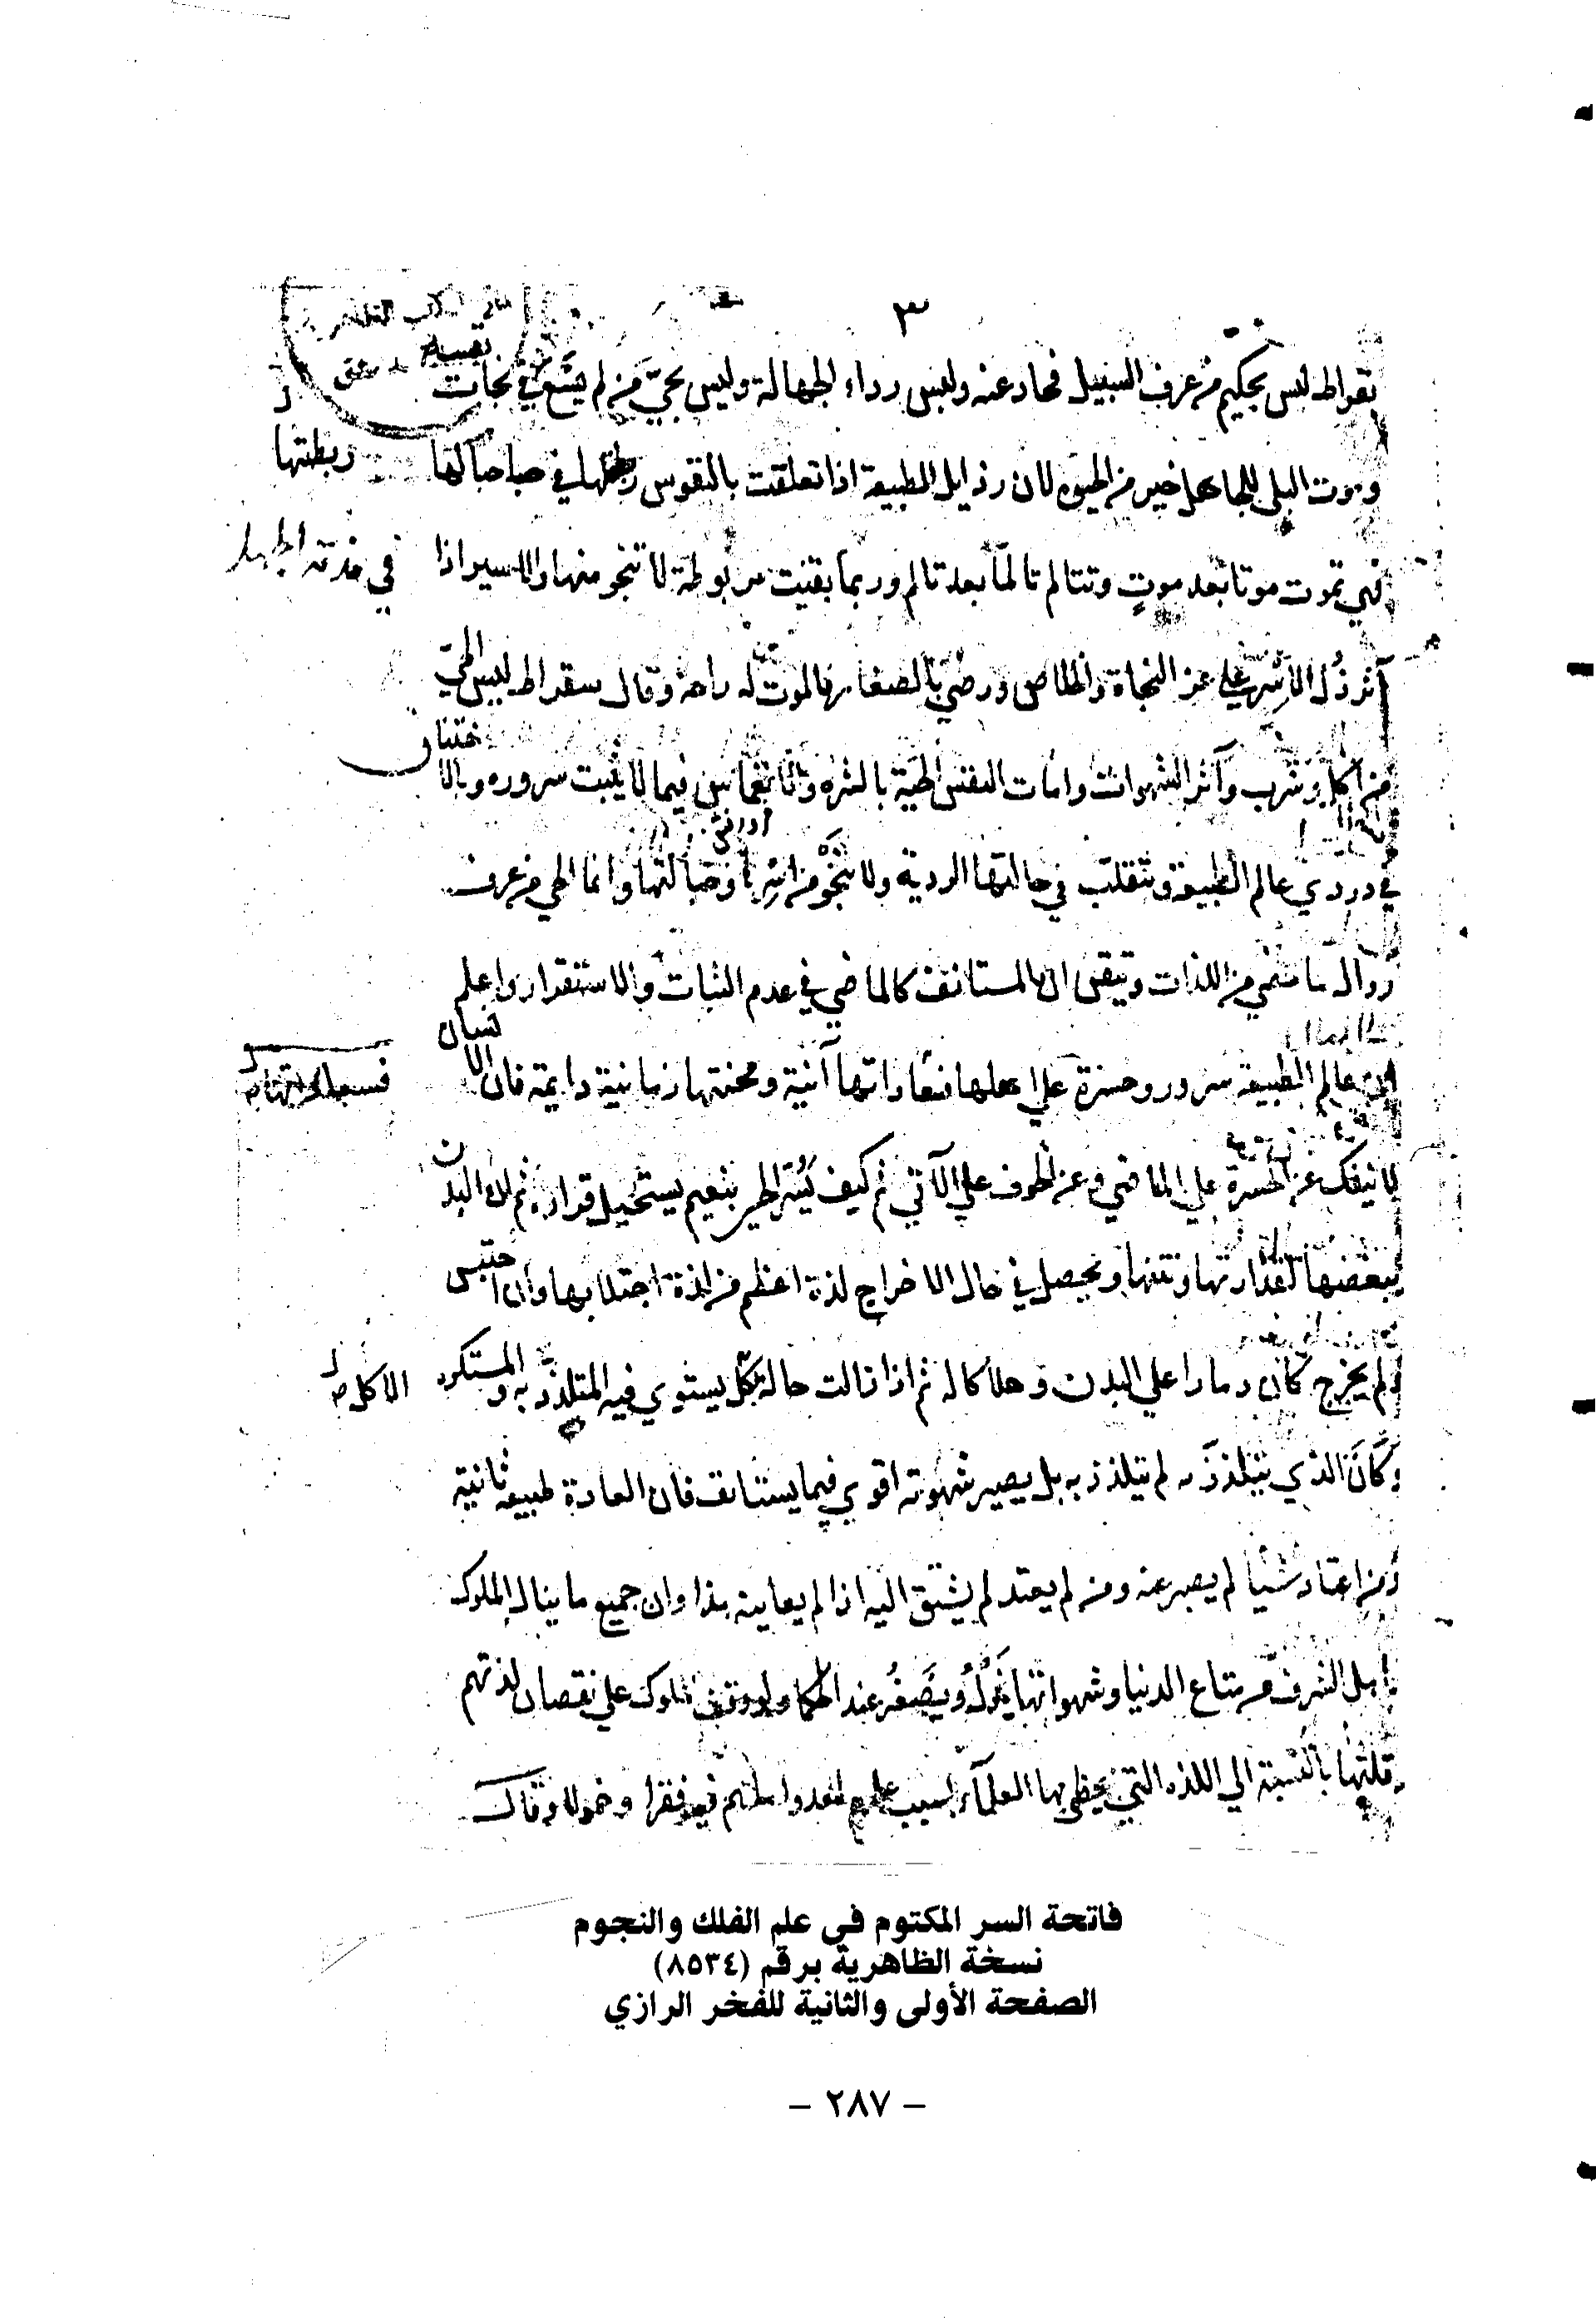 ٣
بقراط ليس بحكيم من عرف السبيل فحاد عنه ولبس رداء الجهالة وليس بحيّ من لم يسَع في نجات
وموت البلي للجاهل خير من الحيوه لان رذايل الطبيعة اذا تعلقت بالنفوس ربطتها في حباحبالها
ربطتها
فهي تموت موتا بعد موتٍ وتتالم تالماً بعد تالم وربما بقيت مربوطة لا تنجو منها والاسير اذا
في
آثر ذُل الأسر علي عز النجاة والخلاص ورضي بالصغار فالموت له راحة وقال سقراط ليس الحيّ
من اكل وشرب وآثر الشهوات وامات النفس الحية بالشره والانغماس فيما لا يثبت سروره وبالا
في دردي عالم الطبيعة وتتقلب في حالتها الردية ولا تنجُو من اسرِها وحبالتها وانما الحي من عرف
زوال ما مضي من اللذات وتيقن ان المستانف كالماضي في عدم الثبات والاستقرار واعلم
ان عالم الطبيعة سرور وحسرة علي اهلها آنية ومحنتها زمانية دايمة فان الانسان
لا ينفك عن الحسرة علي الماضي وعن الخوف علي الآتي ثم كيف بنعيم يستحيل قراره ثم ان البدن
يبغضها لقذارتها ونتنها ويحصل في حال الاخراج لذة اعظم من لذة اجتلابها وان احتبس
ولم يخرج كان دمارا علي البدن وهلاكا له ثم اذا زالت حالة يستوي فيه المتلذذ به والمستكره
الاكل صح
وكَانَ الذي يتلذذ به لم يتلذذ به بل يصير شهوته اقوي فيما يستانف فان العادة طبيعه ثانية
ومن اعتاد شيئا لم يصبر عنه ومن لم يعتد لم يشتق اليه اذا لم يعاينه هذا وان جميع ما ينال الملوك
واهل الشرف من متاع الدنيا وشهواتها ويَصغُر عند الحكما ولو وقف الملوك علي نقصان لذتهم
وقلتها بالنسبة الي اللذه التي يحظي بها العلمآء بسبب علومهم فقرا وخمولا وقال
فاتحة السر المكتوم في علم الفلك والنجوم
نسخة الظاهرية برقم (٨٥٣٤)
الصفحة الأولى والثانية للفخر الرازي
– ٢٨٧ –